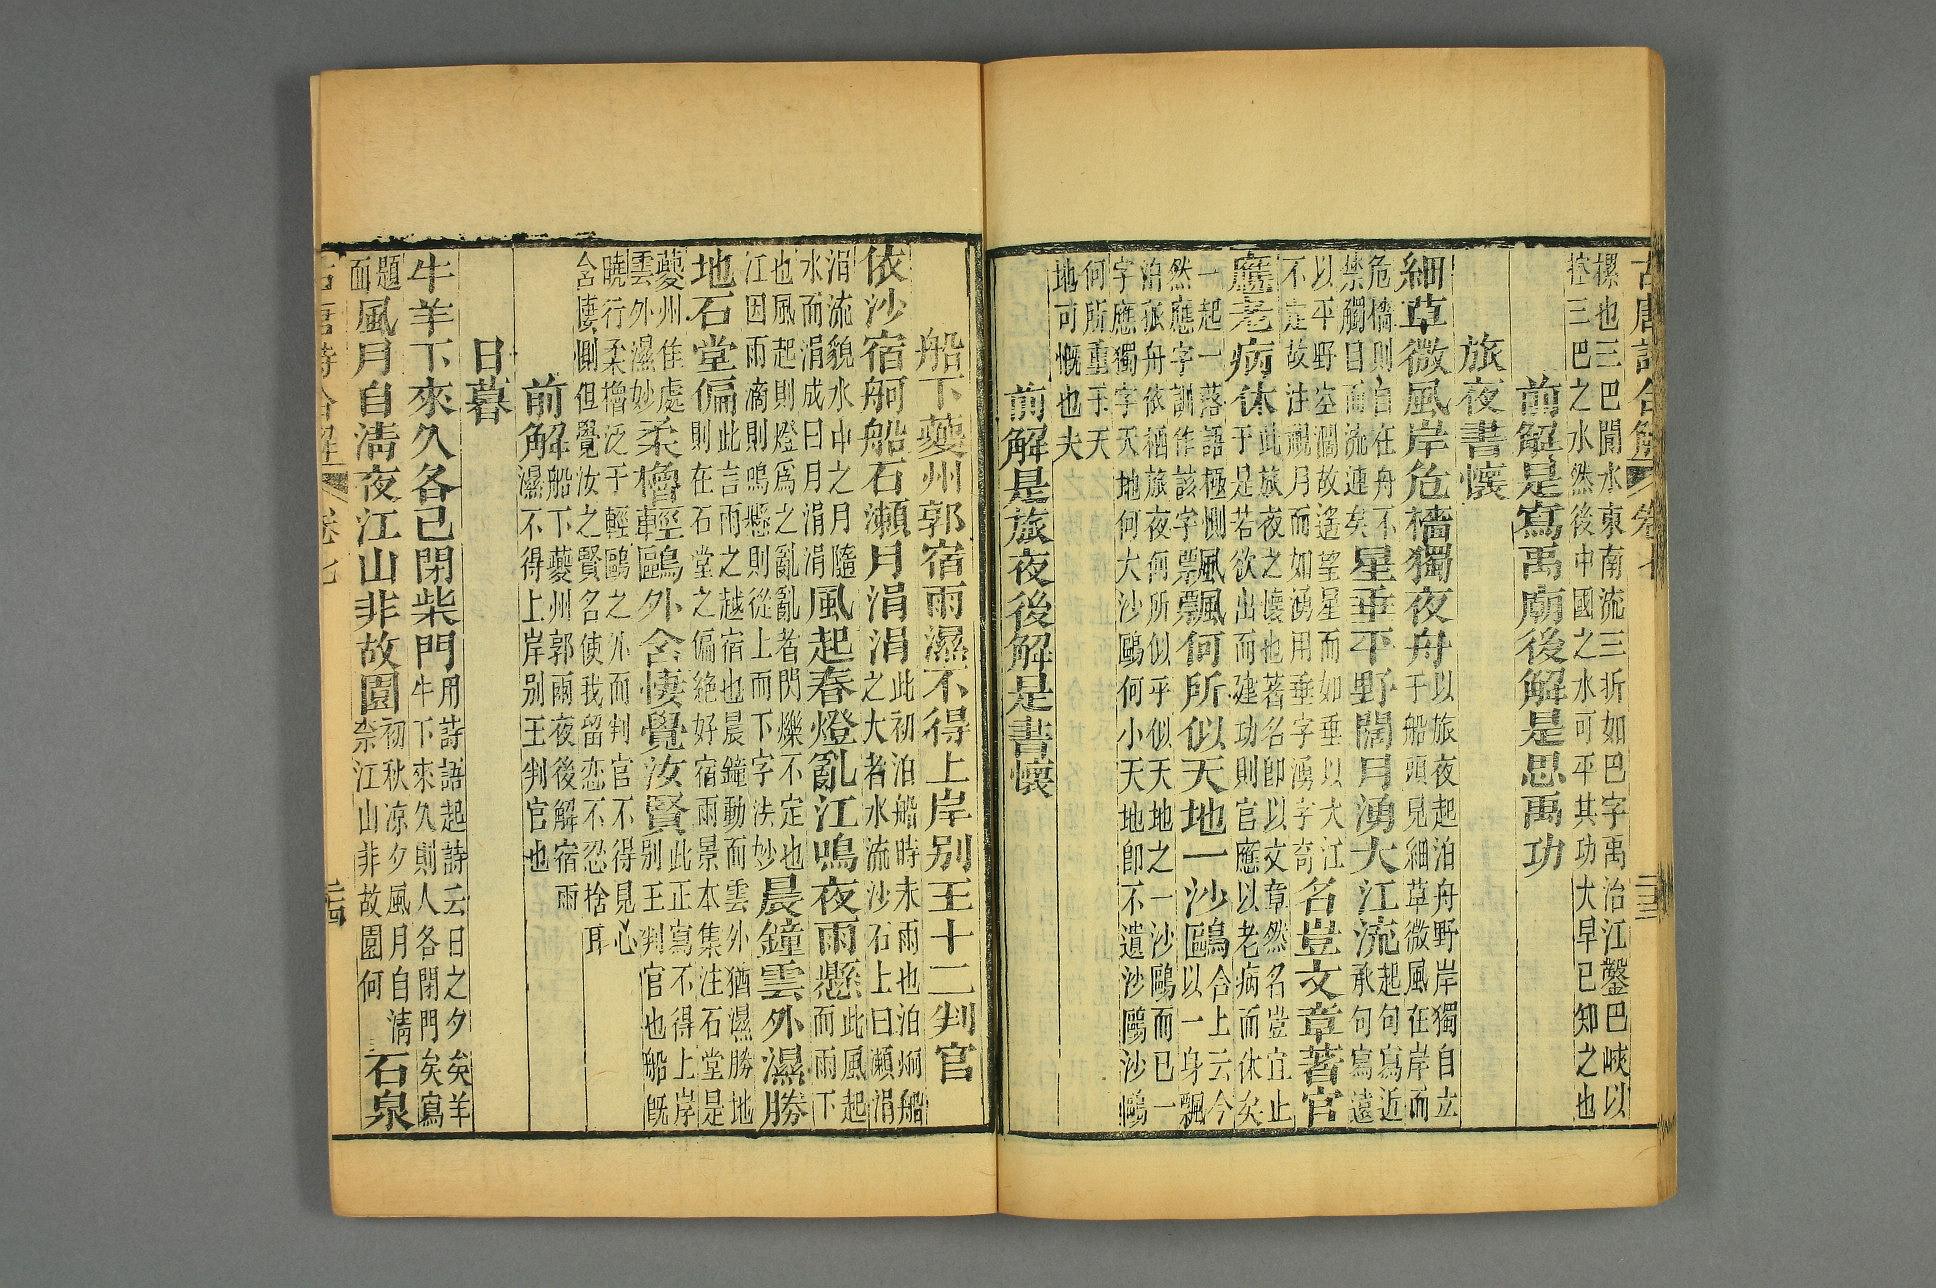 古唐詩合解 卷七 二三
標也三巴閬水東南流三折如巴字禹治江鑿巴峽以
控三巴之水然後中國之水可平其功大早已知之也
前解是寫禹廟後解是思禹功
旅夜書懷
細草微風岸危檣獨夜舟以旅夜起泊舟野岸獨自立
于船頭見細草微風在岸而
危檣則自在舟不
禁觸目而流連矣星垂平野闊月湧大江流起句寫近
承句寫遠
以平野空濶故遙望星而如垂以大江
不定故注視月而如湧用垂字湧字奇名豈文章著官
應老病休此旅夜之懷也著名卽以文章然名豈宜止
于是若欲出而建功則官應以老病而休矣
一起一落語極惻風飄何所似天地一沙鷗合上云今
然應字訓作該字票飄以一身飄
泊孤舟依栖旅夜何所似乎似天地之一沙鷗而已一
字應獨字天地何大沙鷗何小天地卽不遺沙鷗沙鷗
何所重于天
地可慨也夫
前解是旅夜後解是書懷
船下夔州郭宿雨濕不得上岸别王十二判官
依沙宿舸船石瀬月涓涓此初泊船時未雨也泊炯船
之大者水流沙石上曰瀬涓
涓流貌水中之月隨
水而涓成曰月涓涓風起春燈亂江鳴夜雨懸此風起
而雨下
也風起則燈爲之亂亂者閃爍不定也
江因雨滴則鳴懸則從上而下字法妙晨鐘雲外濕勝
地石堂偏此言雨之越宿也晨鐘動而雲外猶濕勝地
則在石堂之偏絶好宿雨景本集注石堂是
夔州佳處
雲外濕妙柔櫓輕鷗外含悽覺汝賢此正寫不得上岸
别王判官也船旣
曉行柔櫓泛于輕鷗之外而判官不得見心
含悽惻但覺汝之賢名使我留恋不忍捨耳
前解船下夔州郭雨夜後解宿雨
濕不得上岸别王判官也
日暮
牛羊下來久各已閉柴門用詩語起詩云日之夕矣羊
牛下來久則人各閉門矣寫
題
面風月自淸夜江山非故園初秋凉夕風月自淸
奈江山非故園何石泉
古唐詩合解 卷七 二四